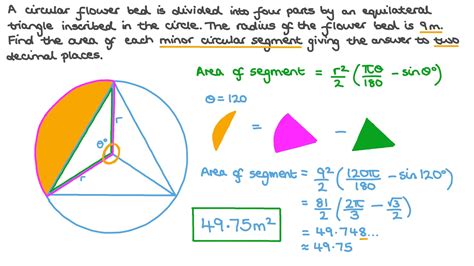 A circular flower bed is divided into four parts by an equilateral
triangle inscribed in the circle. The radius of the flower bed is 9m.
Find the area of each minor circular segment giving the answer to two
decimal places.
Area of segment = r²/2 (πθ/180 - sinθ°)
θ = 120
r
θ°
r
= -
Area of segment = 9²/2 (120π/180 - sin120°)
= 81/2 (2π/3 - √3/2)
= 49.748...
≈ 49.75
49.75m²